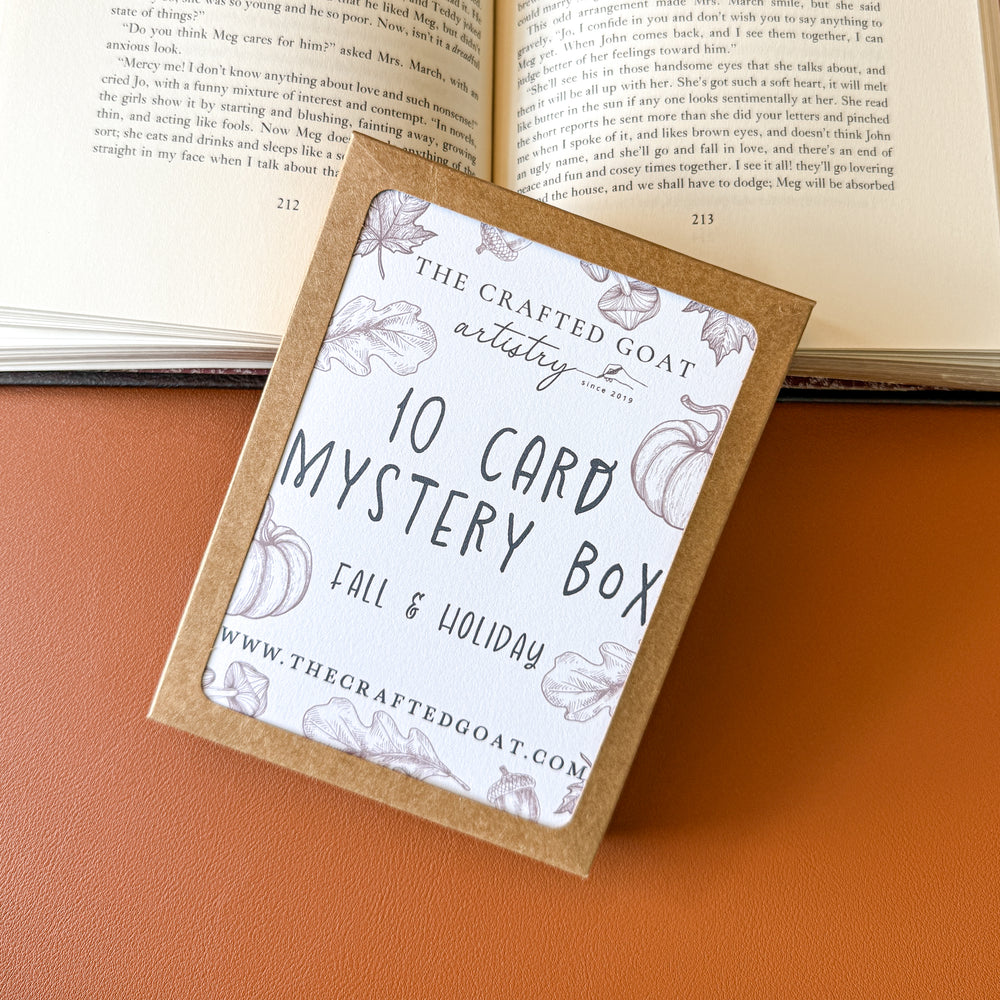 so young and he so poor. Now, isn't it a dreadful
state of things?"
"Do you think Meg cares for him?" asked Mrs. March, with an
anxious look.
"Mercy me! I don't know anything about love and such nonsense!"
cried Jo, with a funny mixture of interest and contempt. "In novels,
the girls show it by starting and blushing, fainting away, growing
thin, and acting like fools. Now Meg does anything of the
sort; she eats and drinks and sleeps like a
straight in my face when I talk about
212
could marry
This odd arrangement made Mrs. March smile, but she said
gravely, "Jo, I confide in you and don't wish you to say anything to
Meg yet. When John comes back, and I see them together, I can
judge better of her feelings toward him."
"She'll see his in those handsome eyes that she talks about, and
then it will be all up with her. She's got such a soft heart, it will melt
like butter in the sun if any one looks sentimentally at her. She read
the short reports he sent more than she did your letters and pinched
me when I spoke of it, and likes brown eyes, and doesn't think John
an ugly name, and she'll go and fall in love, and there's an end of
peace and fun and cosey times together. I see it all! they'll go lovering
the house, and we shall have to dodge; Meg will be absorbed
213
THE CRAFTED GOAT
artistry
since 2019
10 CARD
MYSTERY BOX
FALL & HOLIDAY
WWW.THECRAFTEDGOAT.COM